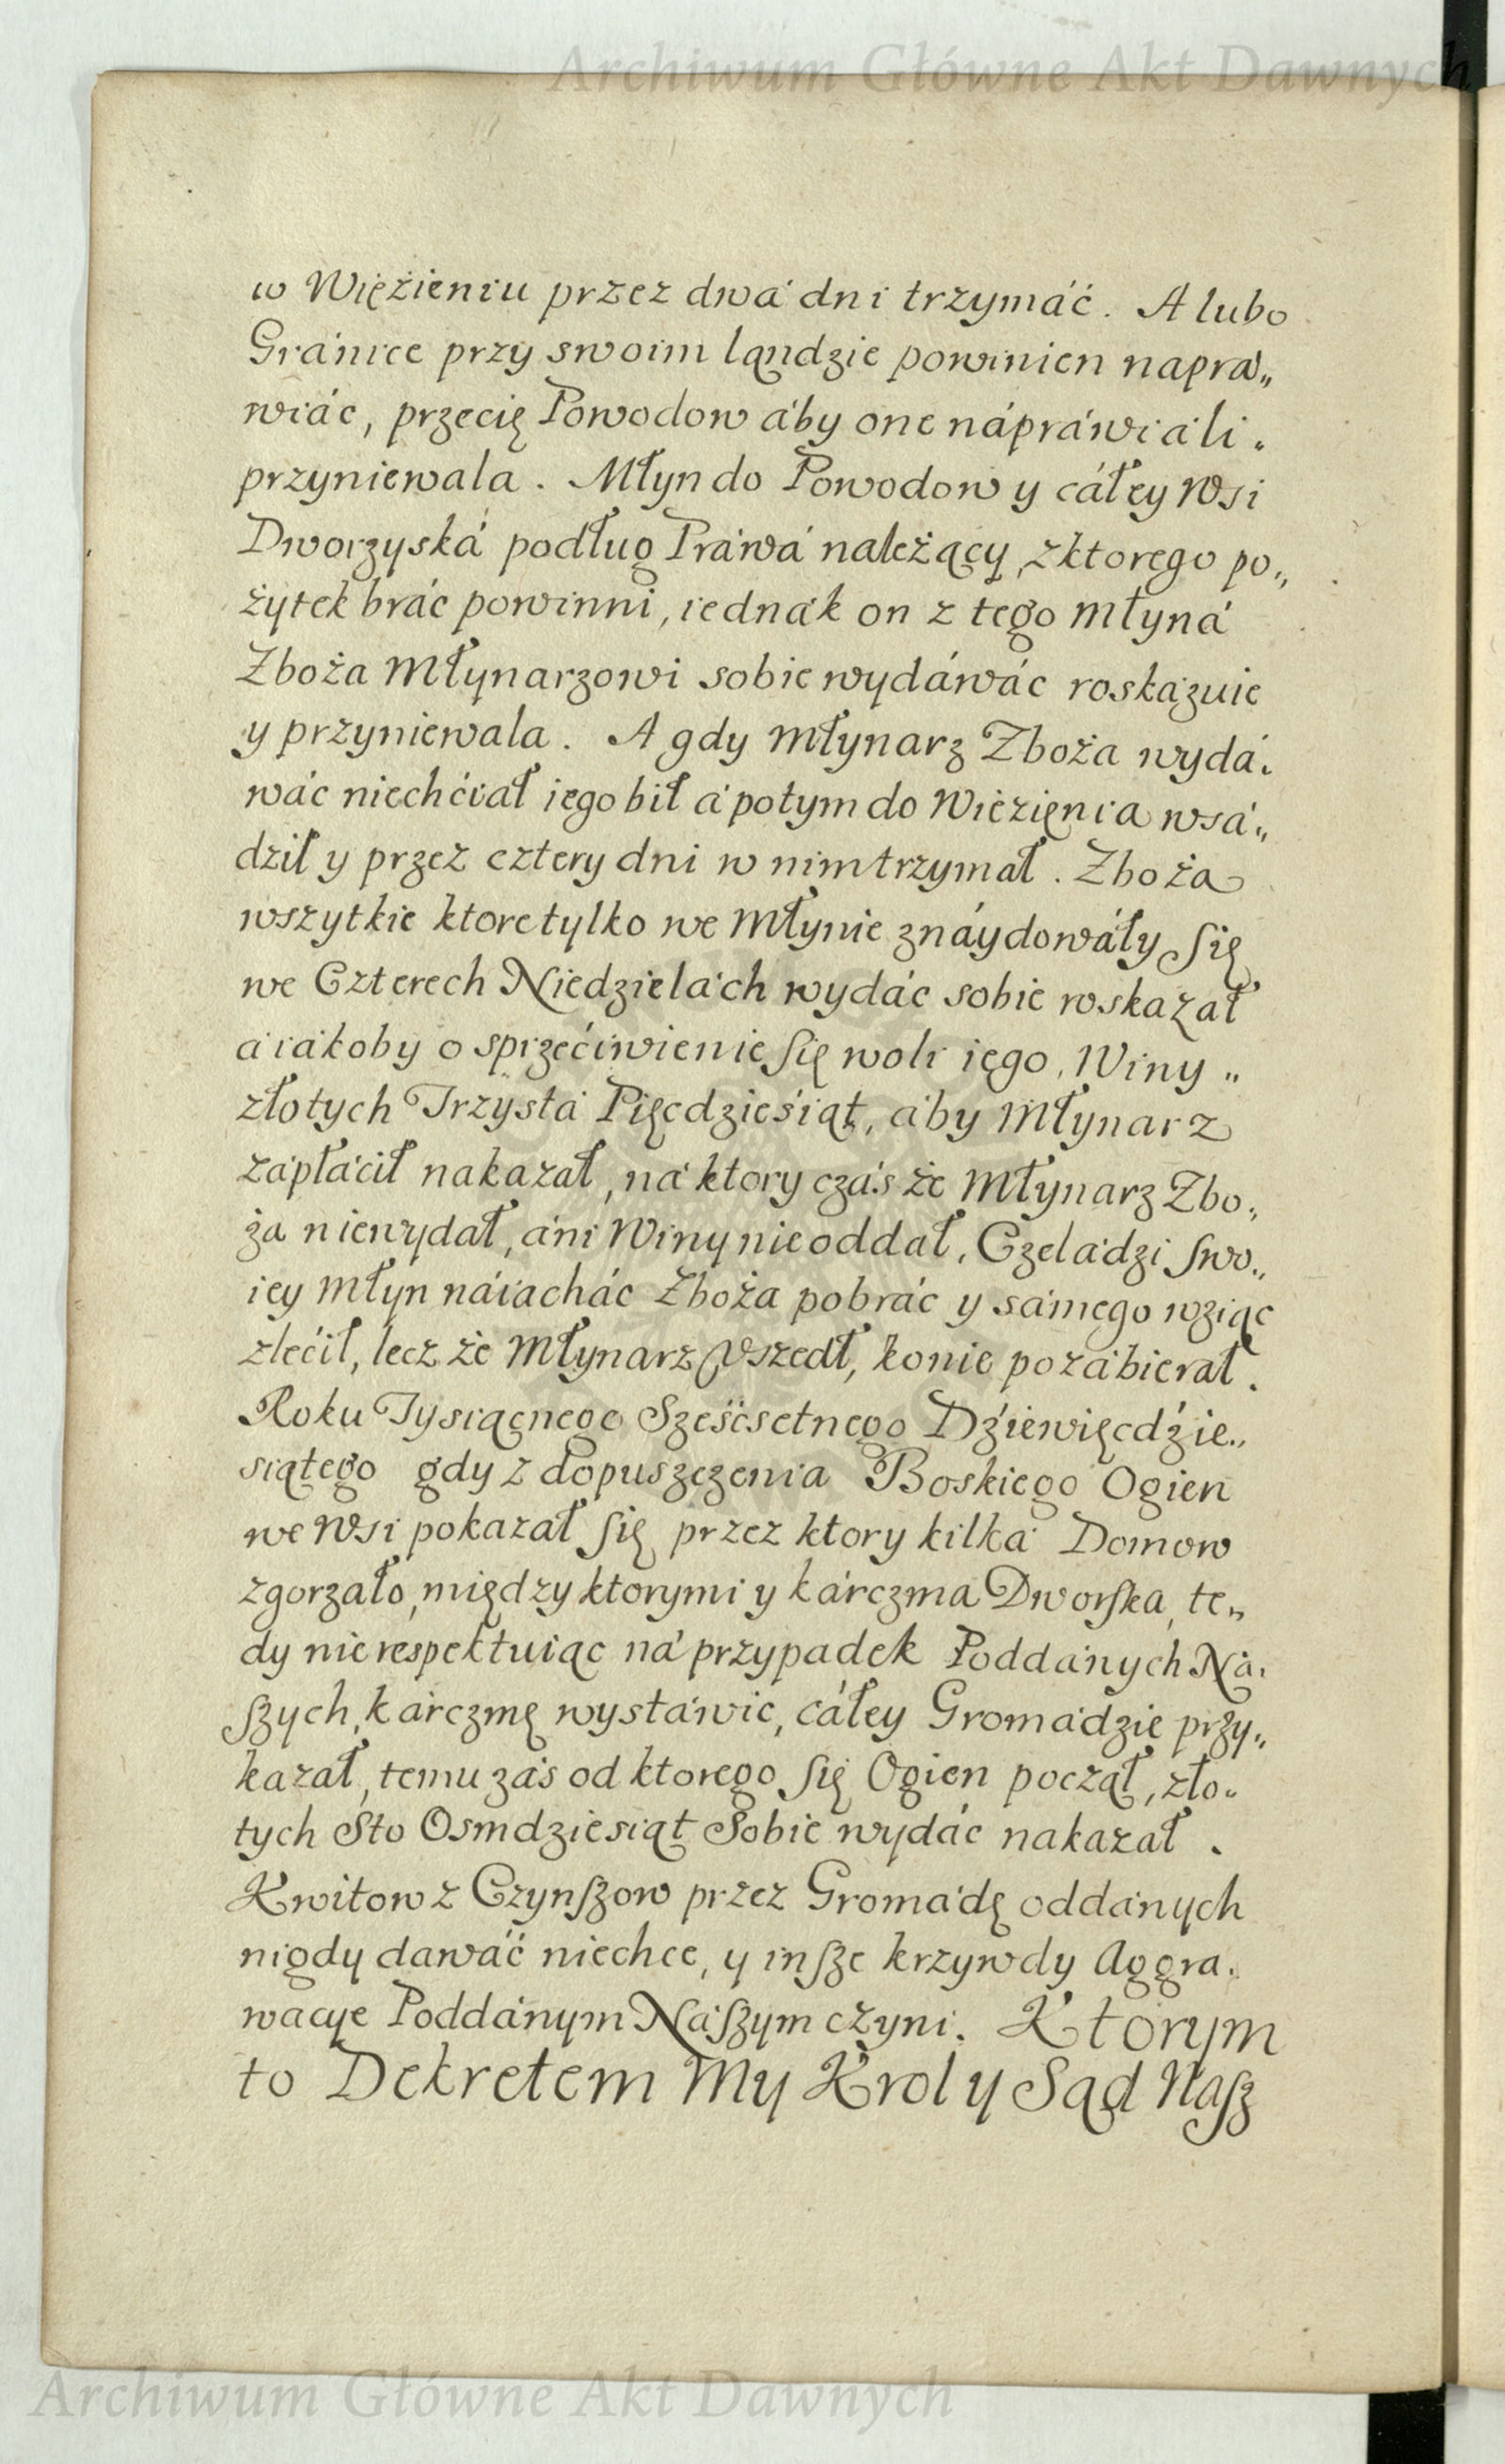 Archiwum Główne Akt Dawnych
w Więźieniu przez dwá dni trzymáć. A lubo
Gránice przy swoim lądzie powinien napra„
wiác, przecię Powodow áby one nápráwiáli„
przyniewala. Młyn do Powodow y cáłey Wsi
Dworzyská podług Práwá należący, z ktorego po„
żytek bráć powinni, iednák on z tego Młyná
Zboża Młynarzowi sobie wydáwác roskázuie
y przyniewala. A gdy Młynarz Zboża wydá„
wác niechćiał iego bił á potym do Wiezięnia wsá„
dził y przez cztery dni w nim trzymał. Zboża
wszytkie ktore tylko we Młynie znáydowáły się
we Czterech Niedzielách wydác sobie roskazał
á iákoby o sprzećiwienie się woli iego, Winy„
złotych Trzystá Pięcdzieśiąt, áby Młynarz
zápłácił nakazał, ná ktory czás że Młynarz Zbo„
ża niewydał, áni Winy nieoddał, Czeládzi swo„
iey Młyn náiachác Zboża pobrác y sámego wziąc
zlećił, lecz że Młynarz Vszedł, konie pozábierał.
Roku Tysiącnego Sześćsetnego Dźiewięcdźie„
siątego gdy z dopuszczenia Boskiego Ogien
we Wsi pokazał się przez ktory kilká Domow
zgorzało, między ktorymi y kárczma Dworska, te„
dy nierespektuiąc ná przypadek Poddánych Ná„
szych, kárczmę wystáwic, cáłey Gromádzie przy„
kazał, temu záś od ktorego się Ogien począł, zło„
tych Sto Osmdziesiąt Sobie wydác nakazał.
Kwitow z Czynszow przez Gromádę oddánych
nigdy dawáć niechce, y insze krzywdy Aggra„
wacye Poddánym Nászym czyni. Ktorym
to Dekretem My Krol y Sąd Nasz
Archiwum Główne Akt Dawnych